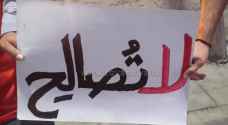 لا تُصالح